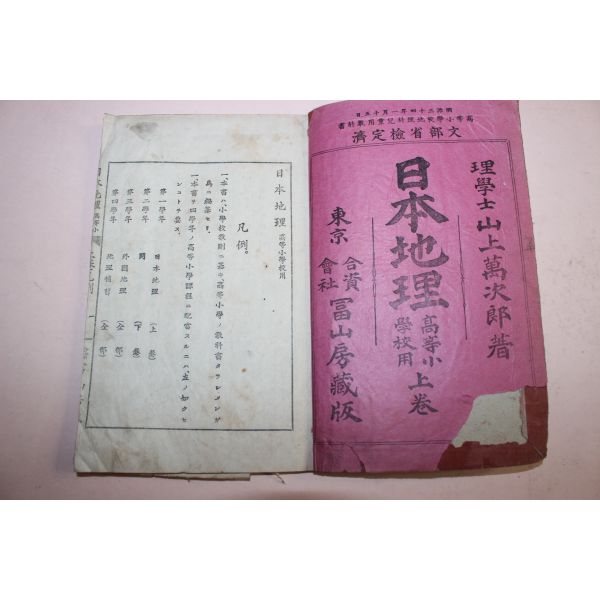 明治三十四年一月十五日
高等小學校地理科兒童用敎科書
文部省檢定濟
理學士 山上萬次郎著
日本地理 高等小學校用 上卷
東京 合資會社 冨山房藏版
日本地理 高等小學校用
凡例。
一、本書ハ、小學校敎則ニ基キ、高等小學ノ敎科書タラシメンガ
爲ニ編纂セリ。
一、本書ヲ四學年ノ高等小學課程ニ配當スルニハ、左ノ如クセ
ンコトヲ要ス。
第一學年 日本地理 (上卷)
第二學年 同 (下卷)
第三學年 外國地理 (全部)
第四學年 地理補習 (全部)
日本地理 高等小